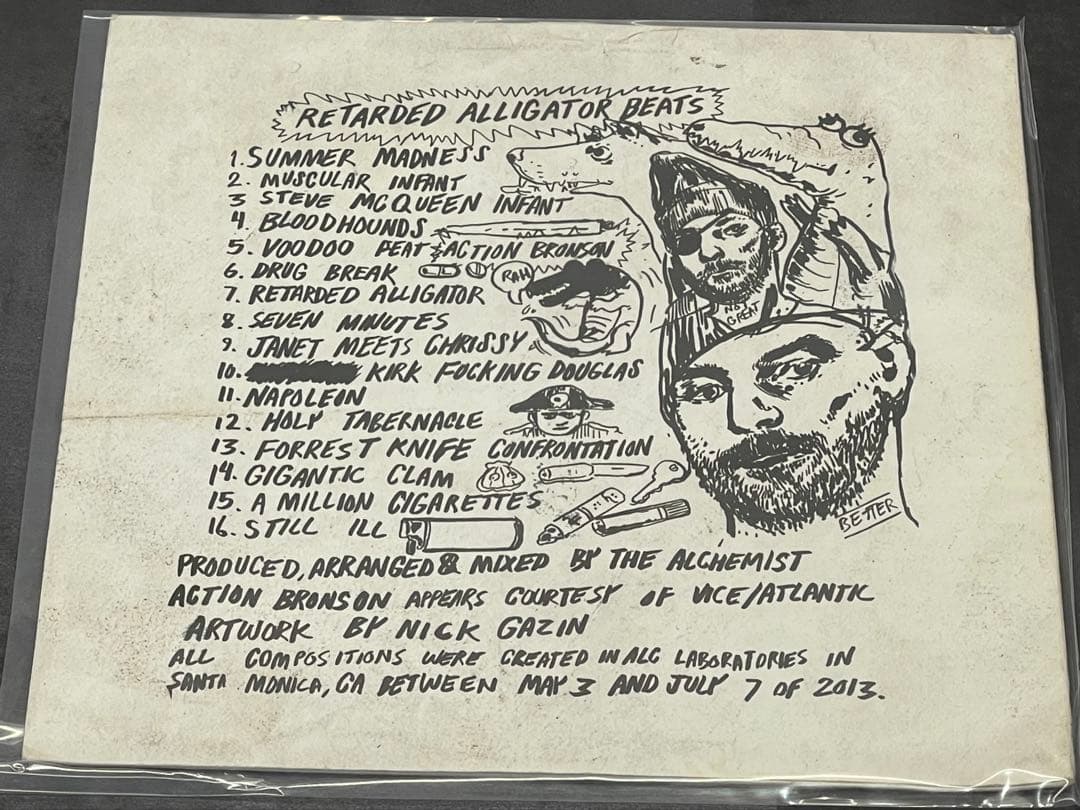 RETARDED ALLIGATOR BEATS
1. SUMMER MADNESS
2. MUSCULAR INFANT
3 STEVE MCQUEEN INFANT
4. BLOODHOUNDS
5. VOODOO FEAT ACTION BRONSON
6. DRUG BREAK
RAH
7. RETARDED ALLIGATOR
8. SEVEN MINUTES
9. JANET MEETS CHRISSY
10. KIRK FUCKING DOUGLAS
11. NAPOLEON
12. HOLY TABERNACLE
13. FORREST KNIFE CONFRONTATION
14. GIGANTIC CLAM
15. A MILLION CIGARETTES
16. STILL ILL
NOT GREAT
BETTER
PRODUCED, ARRANGED & MIXED BY THE ALCHEMIST
ACTION BRONSON APPEARS COURTESY OF VICE/ATLANTIC
ARTWORK BY NICK GAZIN
ALL COMPOSITIONS WERE CREATED IN ALC LABORATORIES IN
SANTA MONICA, CA BETWEEN MAY 3 AND JULY 7 OF 2013.